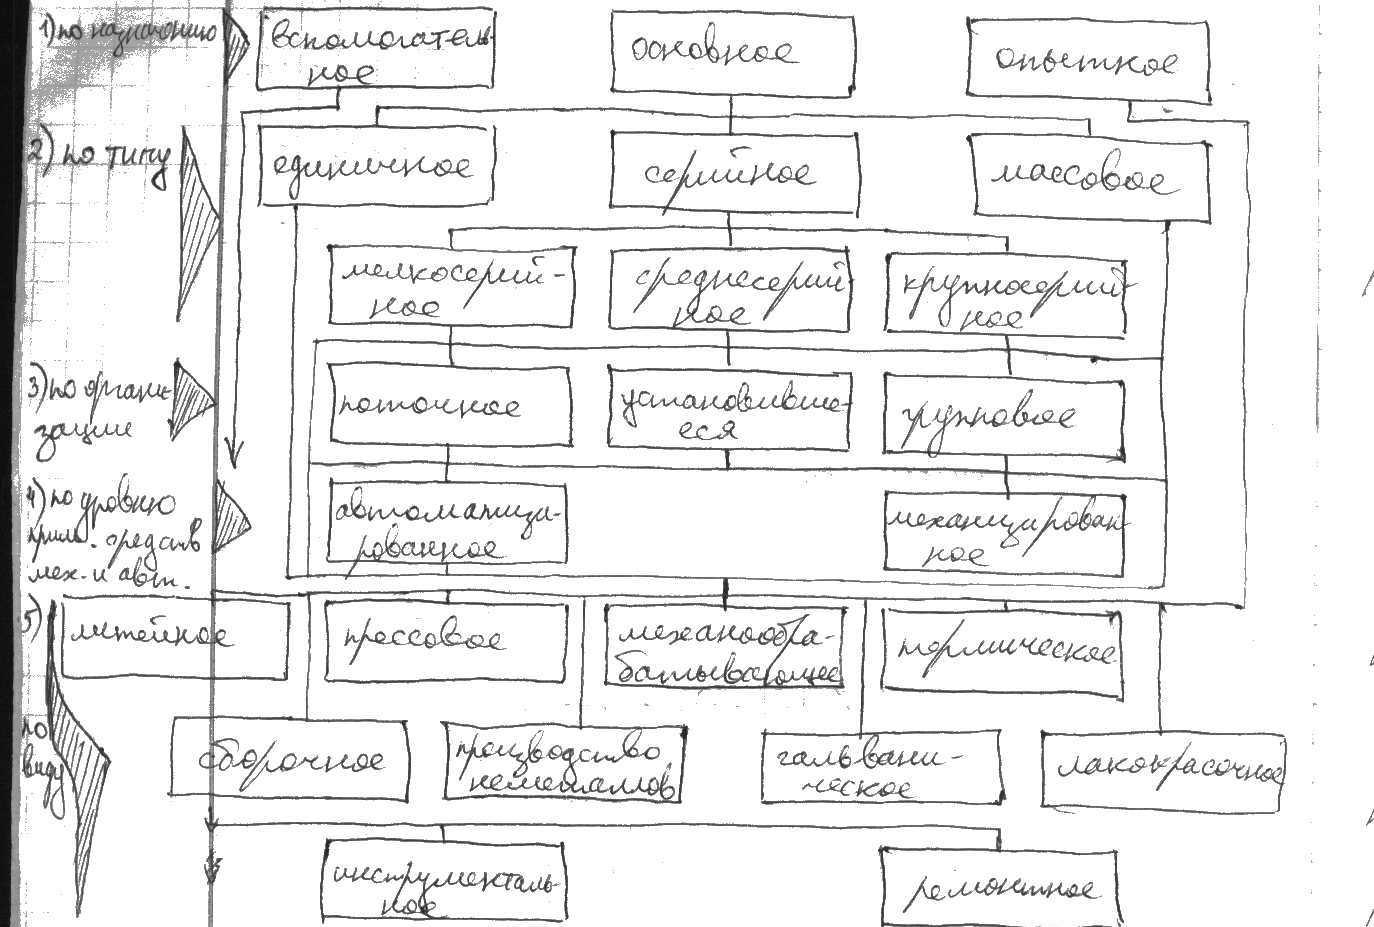 1) по назначению
вспомогатель-
ное
основное
опытное
2) по типу
единичное
серийное
массовое
мелкосерий-
ное
среднесерий-
ное
крупносерий-
ное
3) по органи-
зации
поточное
установивше-
еся
групповое
4) по уровню
прим. средств
мех. и авт.
автоматизи-
рованное
механизирован-
ное
5)
по
виду
литейное
прессовое
механообра-
батывающее
термическое
сборочное
производство
неметаллов
гальвани-
ческое
лакокрасочное
инструменталь-
ное
ремонтное